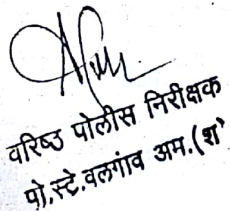 वरिष्ठ पोलीस निरीक्षक
पो.स्टे.वलगांव अम.(श